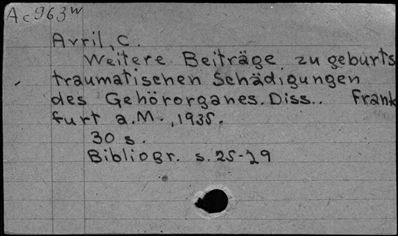 Ac963w
Avril, C.
Weitere Beiträge zu geburts
traumatischen Schädigungen
des Gehörorganes. Diss.. Frank
furt a.M., 1935.
30 s.
Bibliogr. s. 25-29